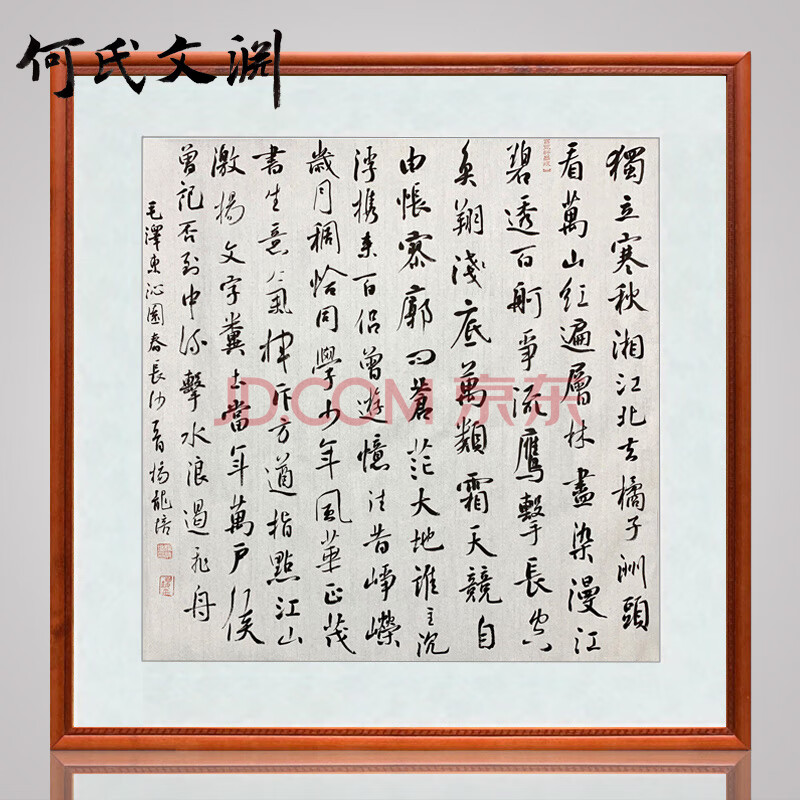 何氏文渊
獨立寒秋湘江北去橘子洲頭
看萬山红遍層林盡染漫江
碧透百舸爭流鷹擊長空
魚翔淺底萬類霜天競自
由悵寥廓问蒼茫大地誰主沉
浮携来百侶曾遊憶往昔崢嶸
歲月稠恰同學少年風華正茂
書生意氣揮斥方遒指點江山
激揚文字糞土當年萬戶侯
曾記否到中流擊水浪遏飛舟
毛澤東沁園春長沙 楊龍
JD.COM 京东